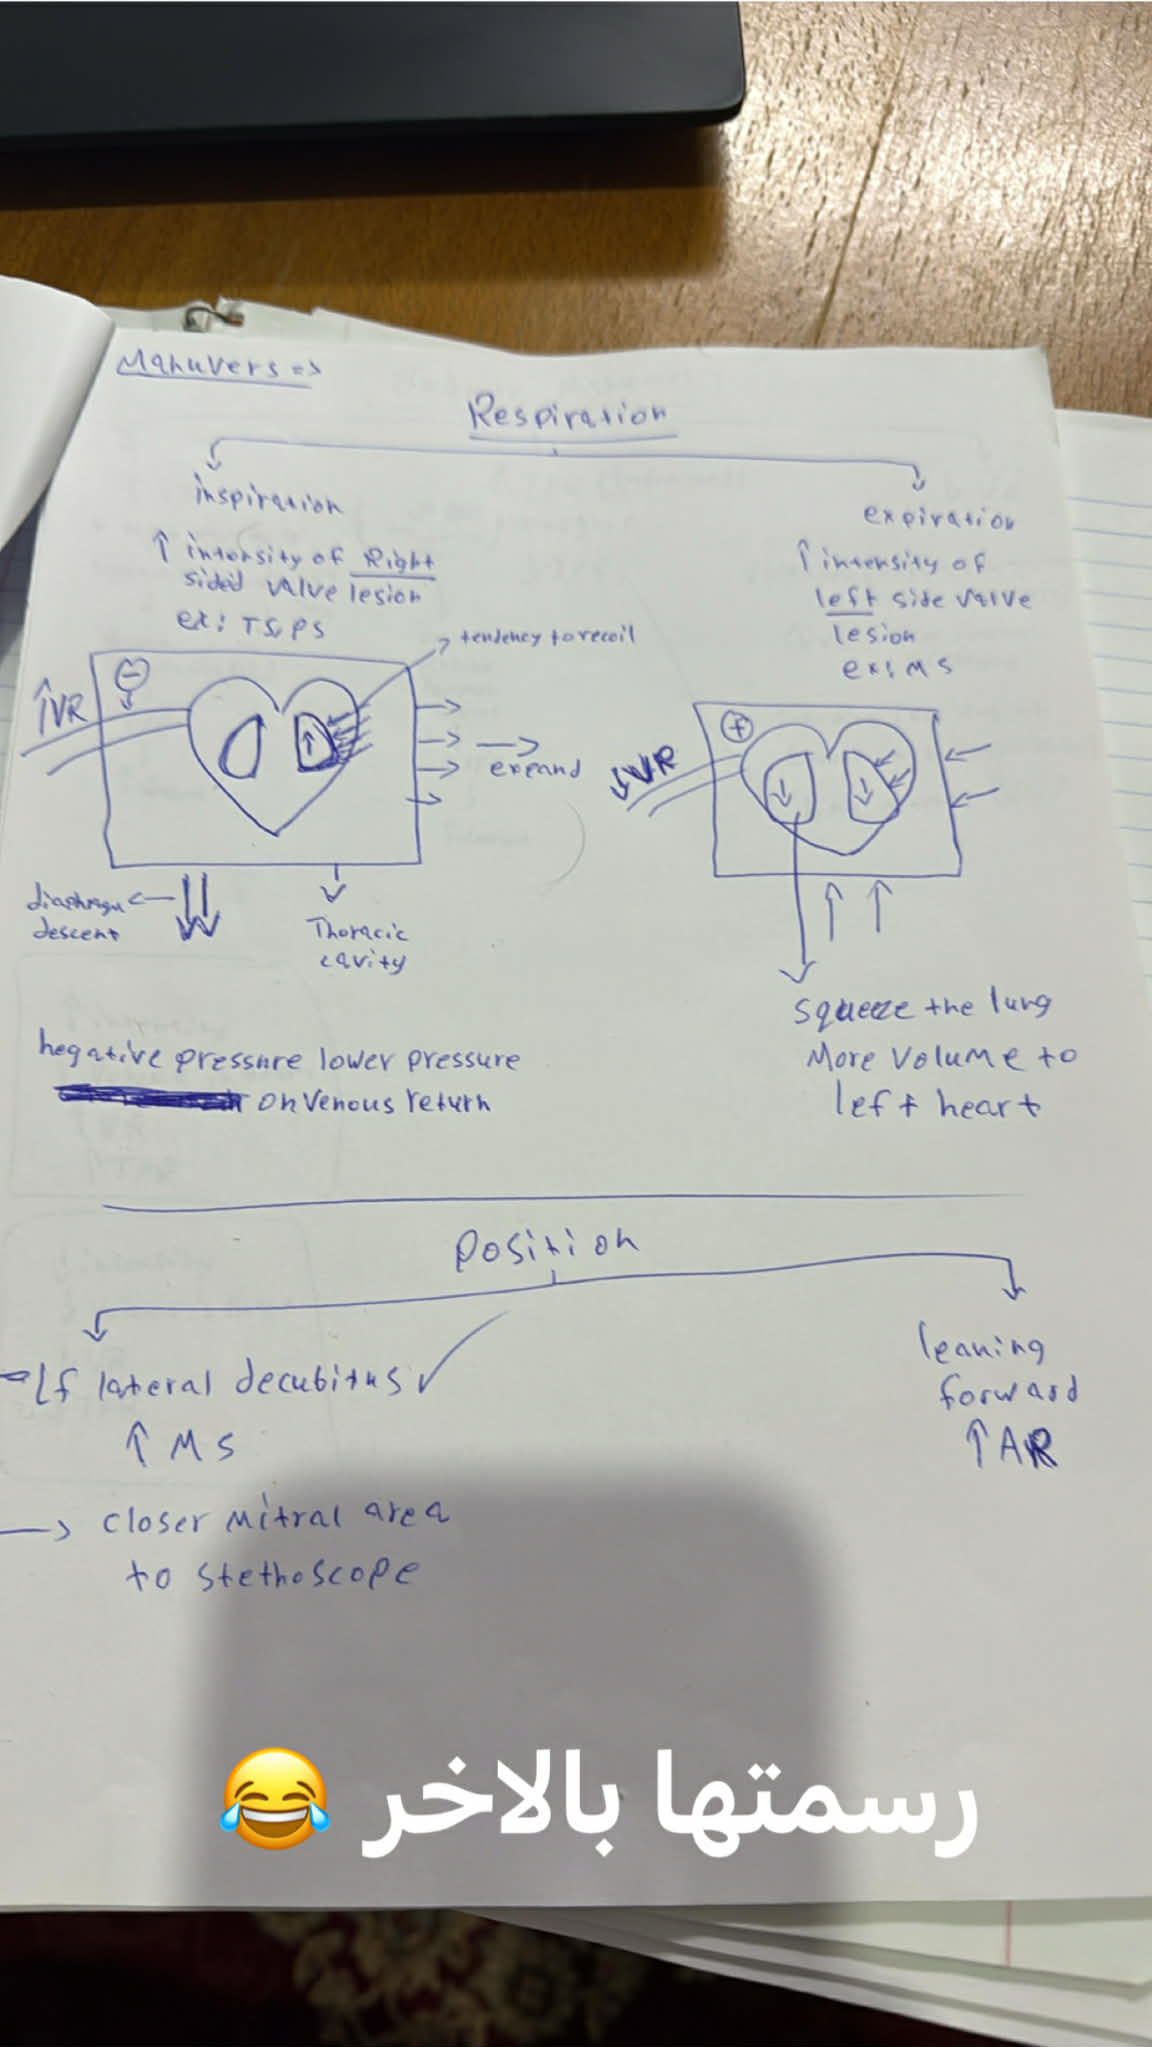 Manuvers =>
Respiration
inspiration
↑ intensity of Right
sided valve lesion
ex: TS, PS
tendency to recoil
↑VR
−
expand
diaphragm
descent
Thoracic
cavity
negative pressure lower pressure
on venous return
expiration
↑ intensity of
left side valve
lesion
ex: MS
+
↓VR
squeeze the lung
More volume to
left heart
Position
Lf lateral decubitus ✓
↑ MS
→ closer mitral area
to stethoscope
leaning
forward
↑ AR
رسمتها بالاخر 😂